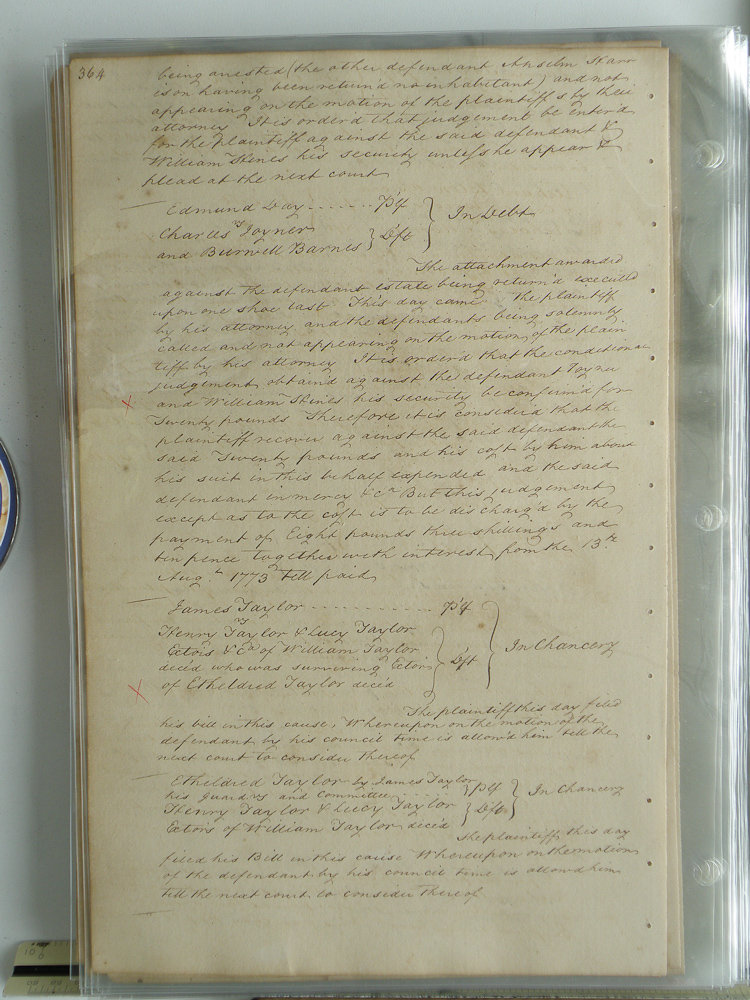 364
being arrested (the other defendant Anselm Harr
ison having been return'd no inhabitant) and not
appearing on the motion of the plaintiff s by their
attorney It is orderd that judgement be enter'd
for the plaintiff against the said defendant &
William Hines his security unless he appear &
plead at the next court
Edmund Day ....... Pl'f
vs
Charles Joyner
and Burwell Barnes } D'ft } In Debt
The attachment awarded
against the defendant estate being return'd executed
upon one shoe last This day came the plaintiff
by his attorney and the defendants being solemnly
called and not appearing on the motion of the plain
tiff by his attorney It is orderd that the conditional
judgement obtain'd against the defendant Joyner
and William Hines his security be confirm'd for
Twenty pounds Therefore it is considerd that the
plaintiff recover against the said defendant the
said Twenty pounds and his cost by him about
his suit in this behalf expended and the said
defendant in mercy &ca But this judgement
except as to the cost is to be discharg'd by the
payment of Eight pounds three shillings and
ten pence together with interest from the 13th
Augt 1773 till paid
James Taylor ........... Pl'f
vs
Henry Taylor & Lucy Taylor
Ectors &Ca of William Taylor
decēd who was surviving Ector
of Etheldred Taylor decēd } D'ft } In Chancery
The plaintiff this day filed
his bill in this cause, Whereupon on the motion of the
defendant by his council time is allow'd him till the
next court to consider thereof
Etheldred Taylor by James Taylor
his guardn and Committee ...... } Pl'f
vs
Henry Taylor & Lucy Taylor } D'ft } In Chancery
Ectors of William Taylor decēd
The plaintiff this day
filed his Bill in this cause Whereupon on the motion
of the defendant by his council time is allow'd him
till the next court to consider thereof